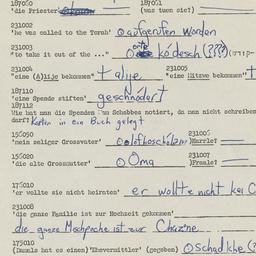 187050 187051
'die Priester (was tuen sie?)
231002
'he was called to the Torah' O aufgerufen worden
231003
"to take it out of the ..."
231004 231005
"eine (A)lije bekommen" + alije "eine Mitzve bekommen" +
187110
"eine Spende stiften" geschnodert
187112
Wie hat man die Spenden am Schabbes notiert, da man nicht schreiben
darf? Karten in ein Buch gelegt
156050 231006
'mein seliger Grossvater'
156020 231007
'die alte Grossmutter' O Oma
175010
'er wollte sie nicht heiraten' er wollte nicht
231008
'die ganze Familie ist zur Hochzeit gekommen'
die ganze Mischpoche ist zur Chazne
175010
(Damals hat es einen)'Ehevermittler' (gegeben) O schadche (?